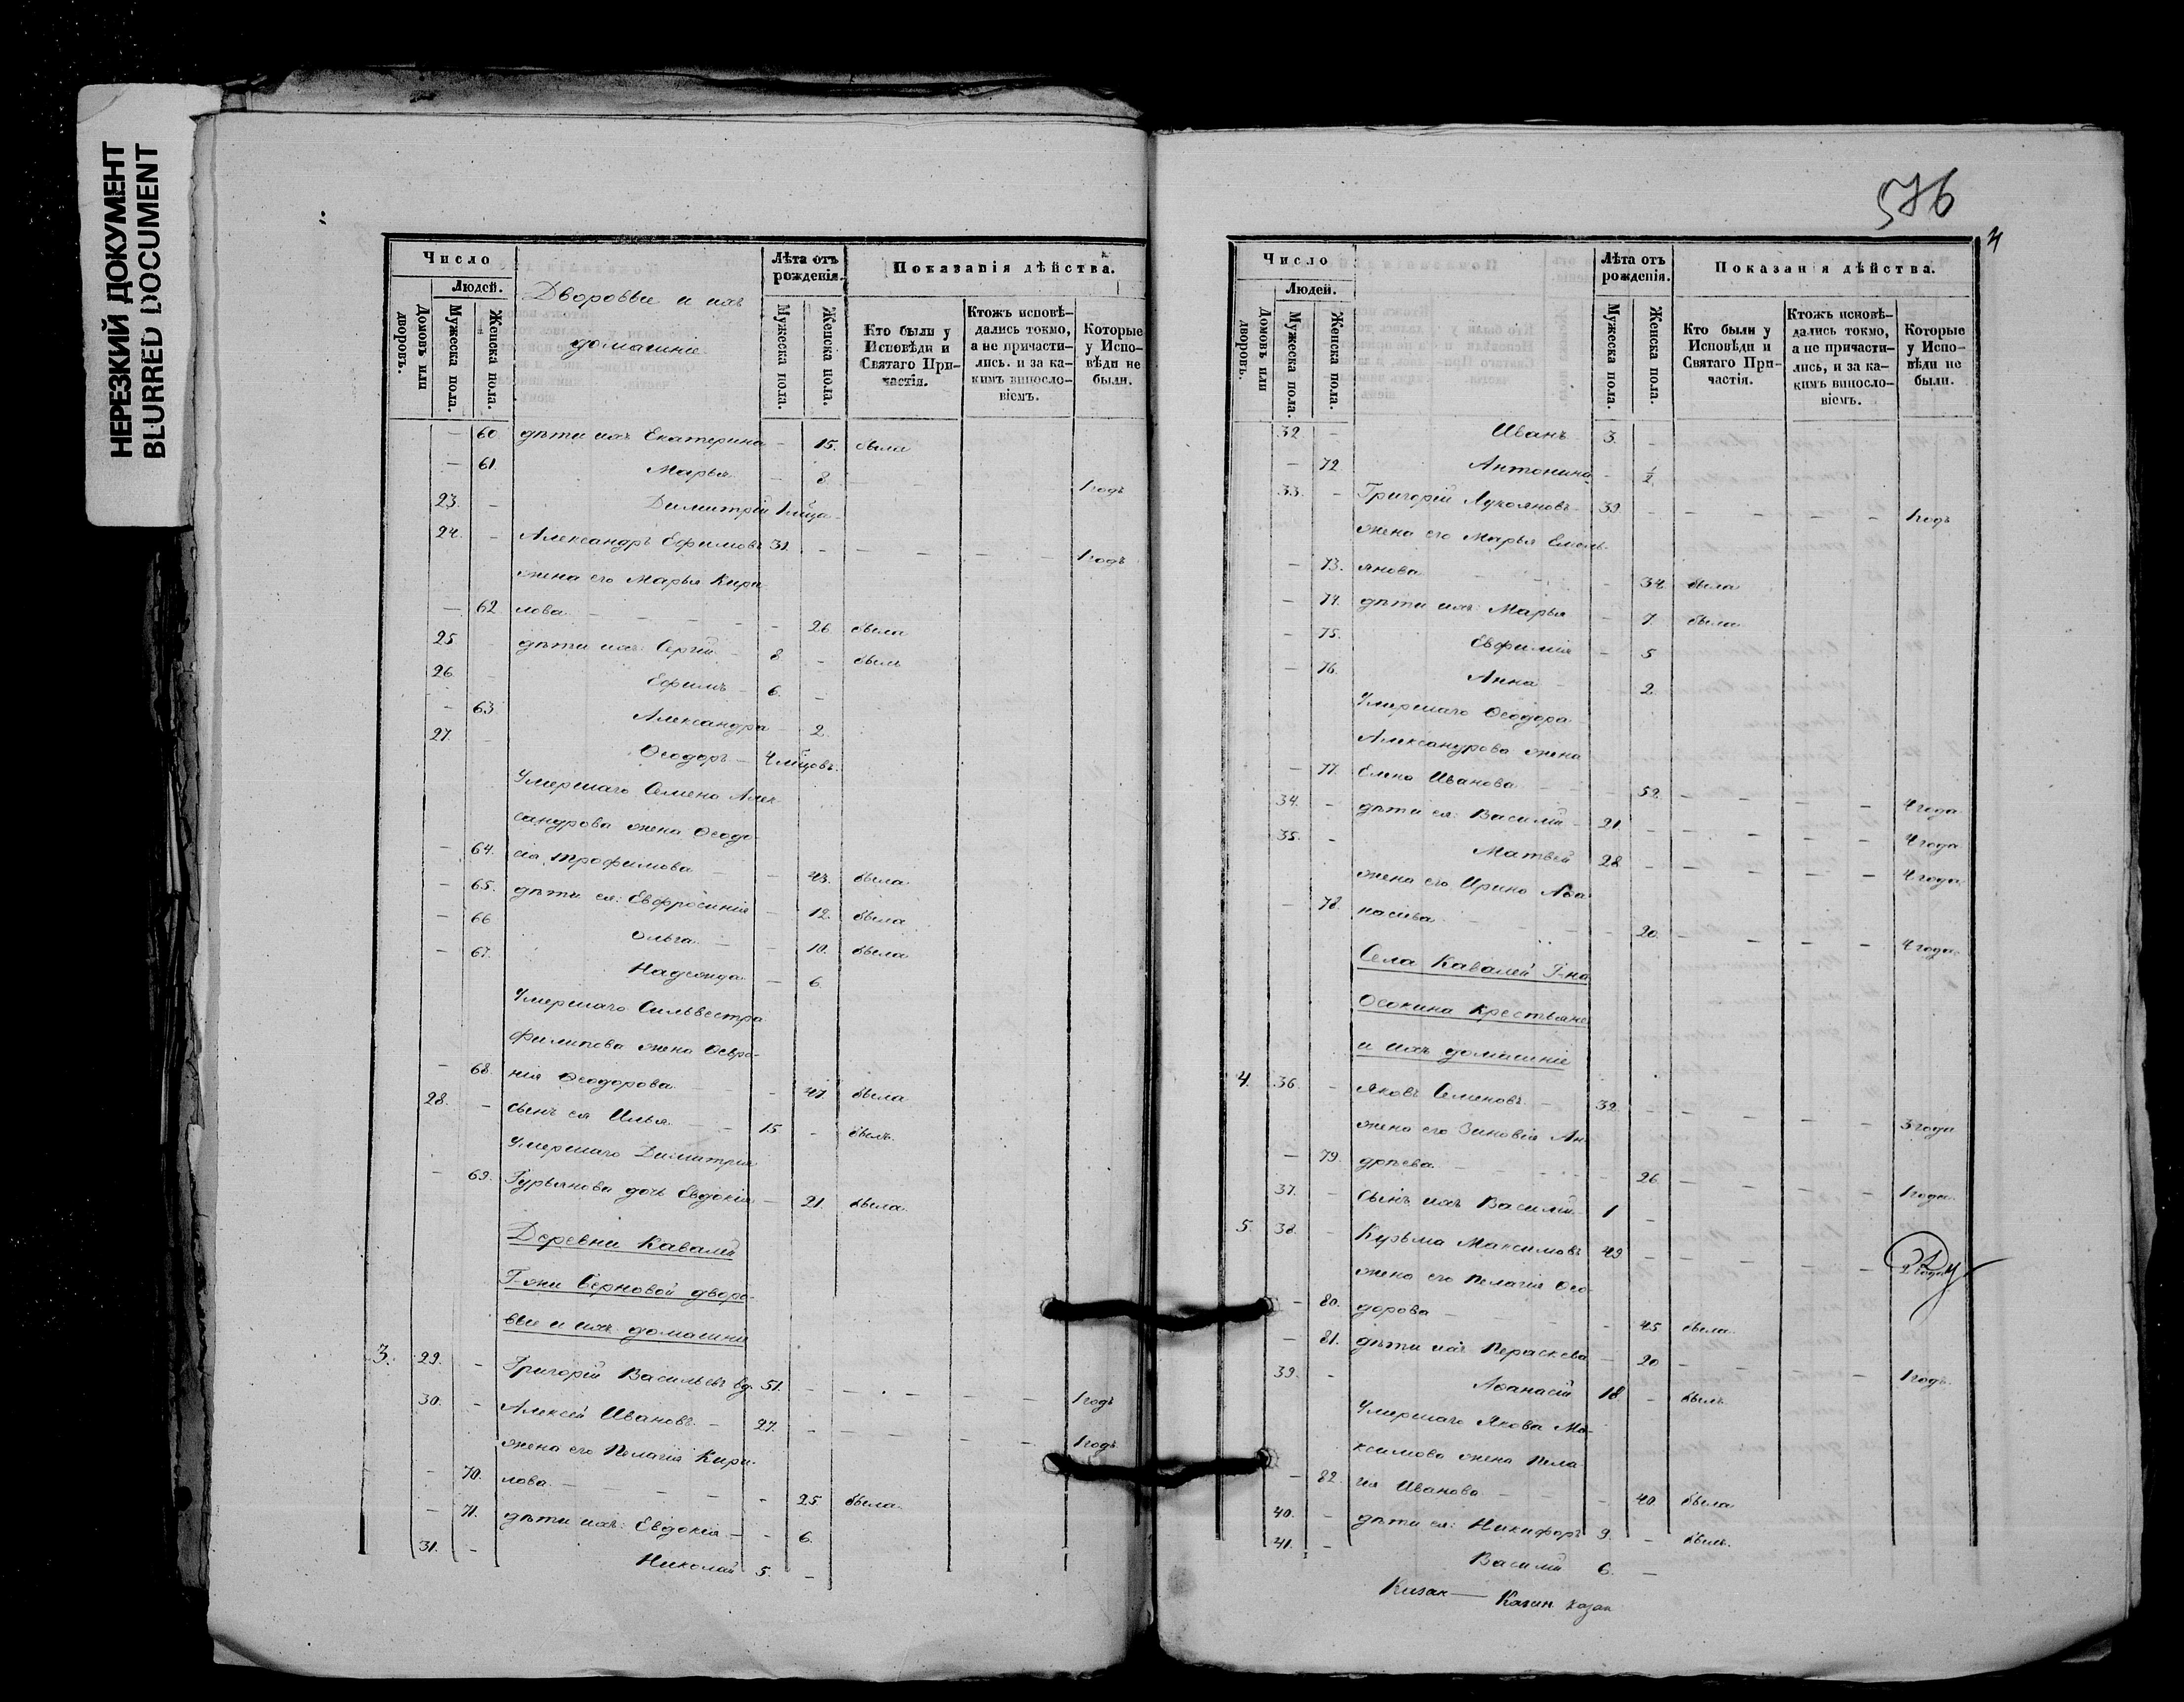 НЕРЕЗКИЙ ДОКУМЕНТ
BLURRED DOCUMENT
Число
Людей.
Домовъ или дворовъ.
Мужеска пола.
Женска пола.
Дворовые и ихъ
домашніе.
Лѣта отъ рожденія.
Мужеска пола.
Женска пола.
Показанія дѣйства.
Кто были у Исповѣди и Святаго Причастія.
Ктожъ исповѣдались токмо, а не причастились. и за какимъ винословіемъ.
Которые у Исповѣди не были.
— 60 дѣти ихъ Екатерина — 15. была
— 61. Марья — 8 1 годъ
23. — Димитрій 1 мѣсца
24. — Александръ Ефимовъ 31. — — — — 1 годъ
жена его Марья Кири
— 62 лова — — — — 26 была
25 — дѣти ихъ: Сергій — 8 — былъ
26 — Ефимъ — 6. —
— 63. Александра — 2.
27. — Ѳеодоръ — 4 мѣсцовъ.
Умершаго Семена Алек
сандрова жена Ѳеодо
— 64. сія Трофимова — — 43. была.
— 65. дѣти ея: Евфросинія — 12. была
— 66 Ольга — — 10. была
— 67. Надежда — 6.
Умершаго Сильвестра
Филипова жена Февро-
— 68. нія Ѳеодорова — — 47 была
28. — сынъ ея Илья — — 15. — былъ.
Умершаго Димитрія
— 69. Гурьянова дочь Евдокія — 21. была.
Деревни Кавалей
Г-жи Черновой дворо-
вые и ихъ домашніе
3. 29. — Григорій Васильевъ вд. 51. — — — — 1 годъ
30. — Алексѣй Ивановъ — 27. — — — — 1 годъ
жена его Пелагія Кири-
— 70. лова — — — — 25 была.
— 71. дѣти ихъ: Евдокія — — 6.
31. — Николай 5. —
576
4
Число
Людей.
Домовъ или дворовъ.
Мужеска пола.
Женска пола.
Лѣта отъ рожденія.
Мужеска пола.
Женска пола.
Показанія дѣйства.
Кто были у Исповѣди и Святаго Причастія.
Ктожъ исповѣдались токмо, а не причастились, и за какимъ винословіемъ.
Которые у Исповѣди не были.
32. — Иванъ 3. —
— 72 Антонина — ½
33. — Григорій Лукояновъ 39. — — — — 1 годъ
жена его Марья Емель-
— 73. янова — — — 34. была
— 74. дѣти ихъ: Марья — 7. была.
— 75. Евфимія — 5
— 76. Анна — 2.
Умершаго Ѳеодора
Александрова жена
— 77. Елена Иванова — — 52. — — — — 4 года
34. — дѣти ея: Василій — 21. — — — — 4 года
35. — Матвей 28 — — — — 4 года
жена его Ирина Аѳа
— 78. насьева — — — 20. — — — — 4 года.
Села Кавалей Г-на
Осокина крестьяне
и ихъ домашніе
4. 36. — Яковъ Семеновъ — 32. — — — — 3 года
жена его Зиновія Ан
— 79. дрѣева — — — 26 — — — — 1 года.
37. — сынъ ихъ Василій — 1 —
5. 38. — Кузьма Максимовъ 49 — — — — 2 года
жена его Пелагія Ѳео-
— 80. дорова — — — 45 была.
— 81. дѣти ихъ Параскева — 20 — — 1 годъ.
39. — Аѳанасій 18. — былъ
Умершаго Якова Ма-
ксимова жена Пела
— 82. гія Иванова — — 40. была
40. — дѣти ея: Никифоръ 9. — былъ.
41. — Василій 6. —